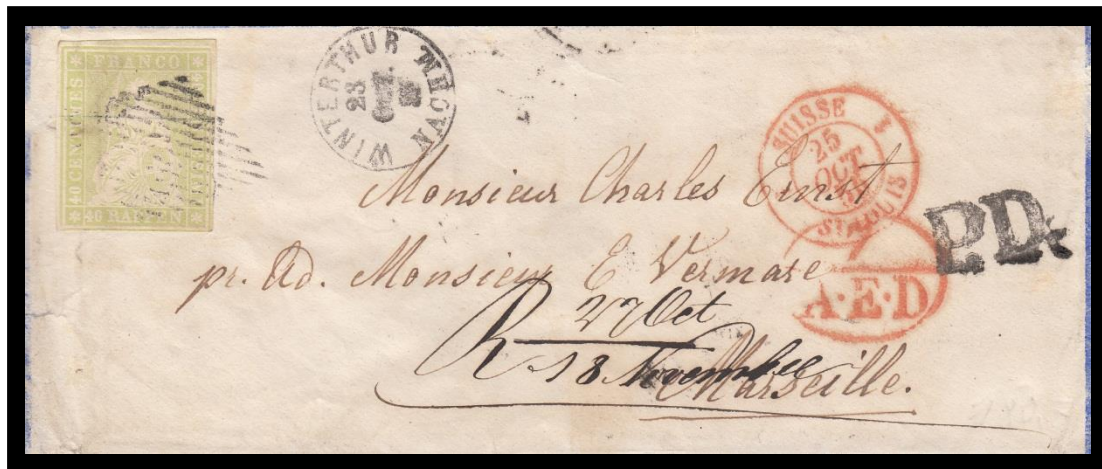 FRANCO
40 CENTIMES
40 RAPPEN
WINTERTHUR NACHM
23
OCT.
SUISSE 1
25
OCT
ST LOUIS
P.D.
A·E·D
Monsieur Charles Ernst
pr. Ad. Monsieur E Vermare
R 27 Oct
18 Novembre
Marseille.